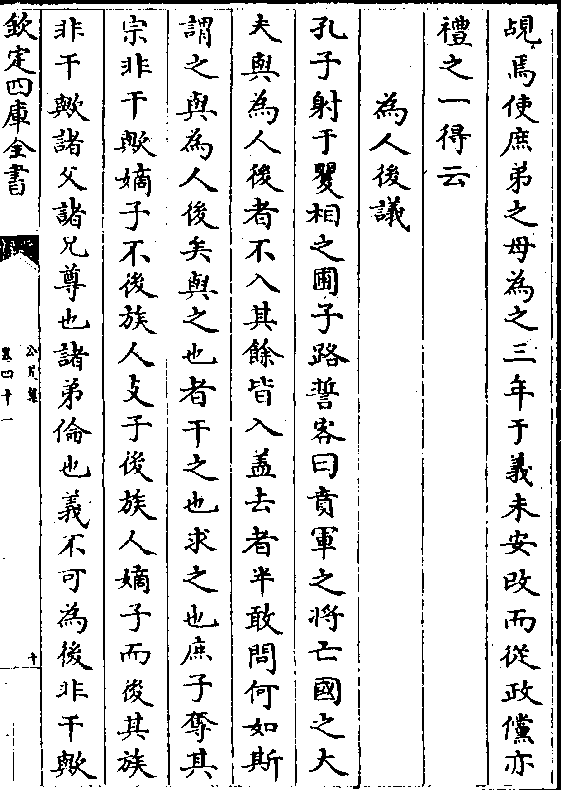 覥焉使庶弟之母為之三年于義未安改而從政儻亦
禮之一得云
為人後議
孔子射于矍相之圃子路誓客曰賁軍之將亡國之大
夫與為人後者不入其餘皆入葢去者半敢問何如斯
謂之與為人後矣與之也者干之也求之也庶子奪其
宗非干歟嫡子不後族人支子後族人嫡子而後其族
非干歟諸父諸兄尊也諸弟倫也義不可為後非干歟
欽定四庫全書
公是集
卷四十一
十